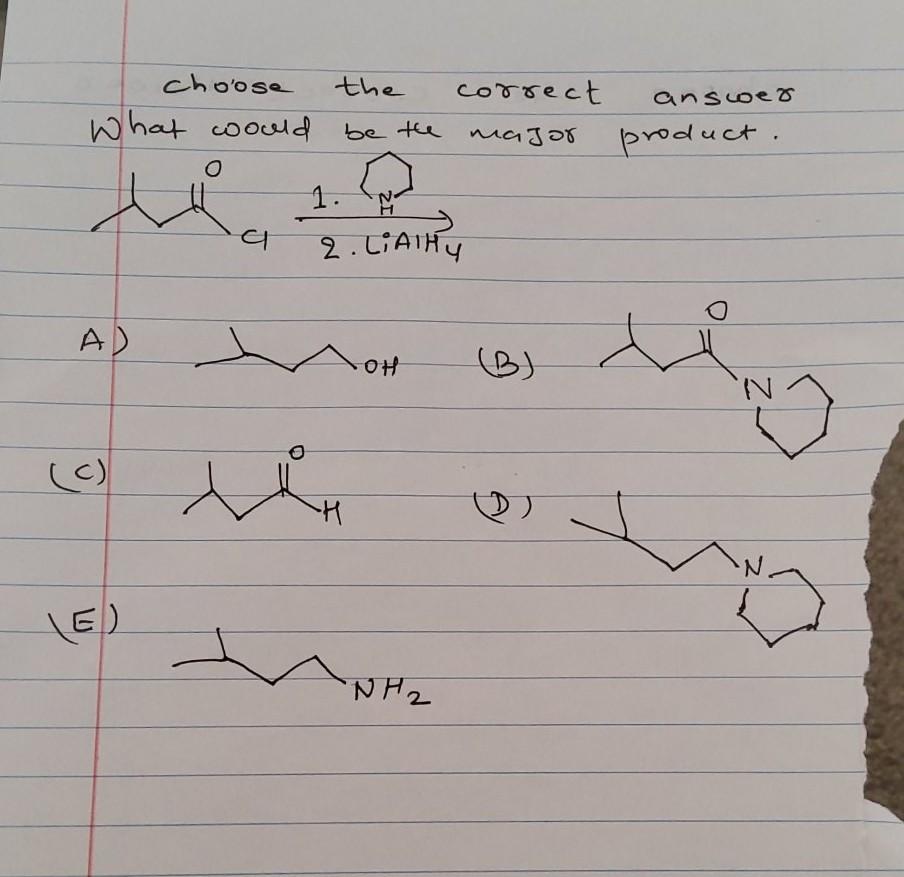 choose the correct answer
What woould be the major product.
O
1. N
H
Cl
2. LiAlH4
A) OH (B) O
N
(C) O
H (D) N
(E) NH2